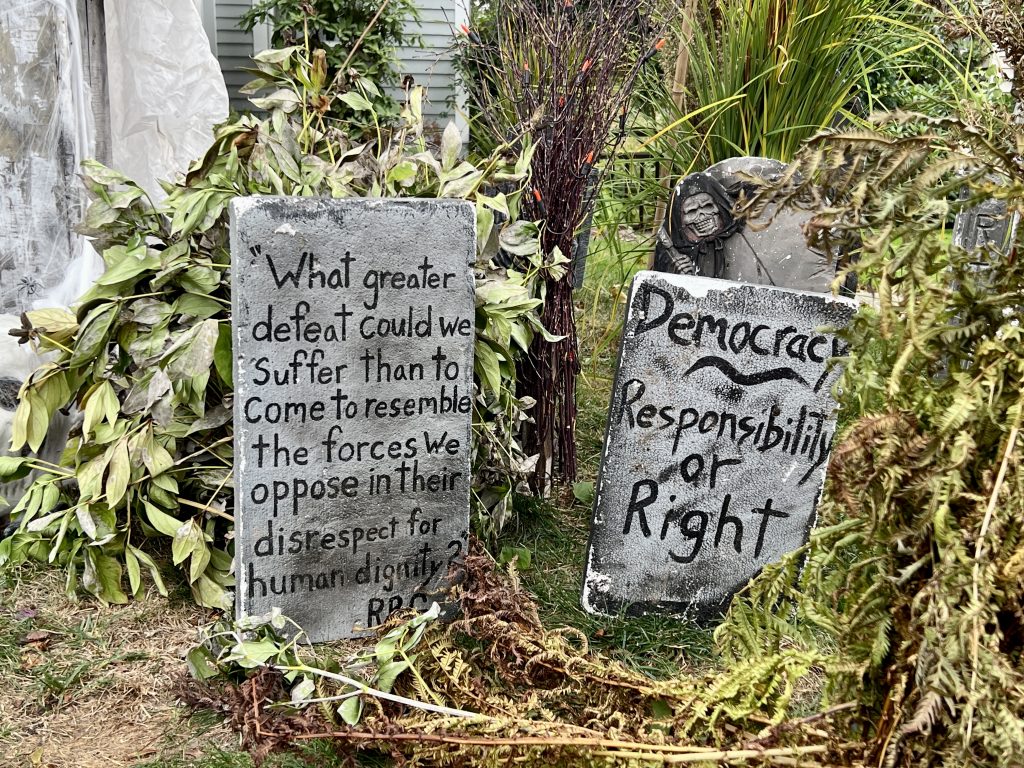 "What greater
defeat could we
suffer than to
come to resemble
the forces we
oppose in their
disrespect for
human dignity?"
RBG
Democracy
Responsibility
or
Right